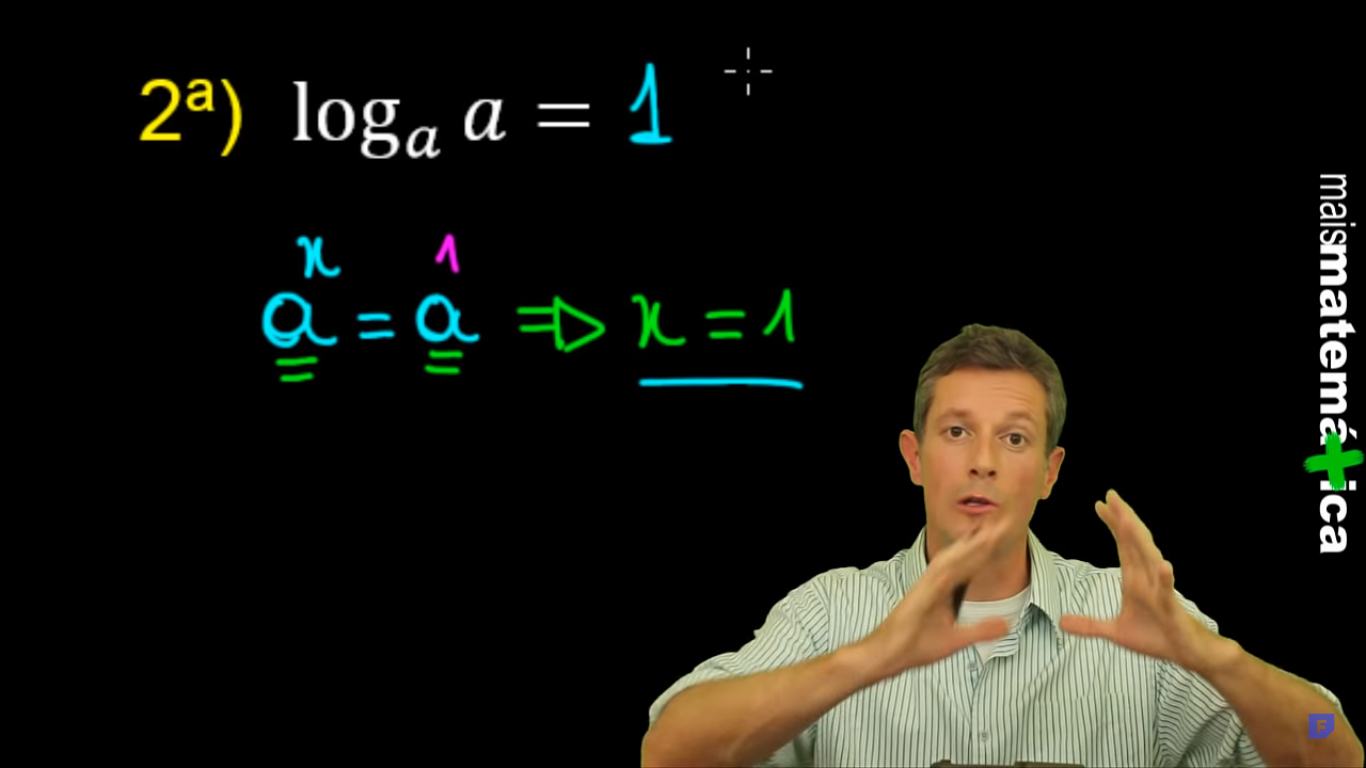 2ª) logₐ a = 1
aˣ = a¹ ⇒ x = 1
maismatemática
F